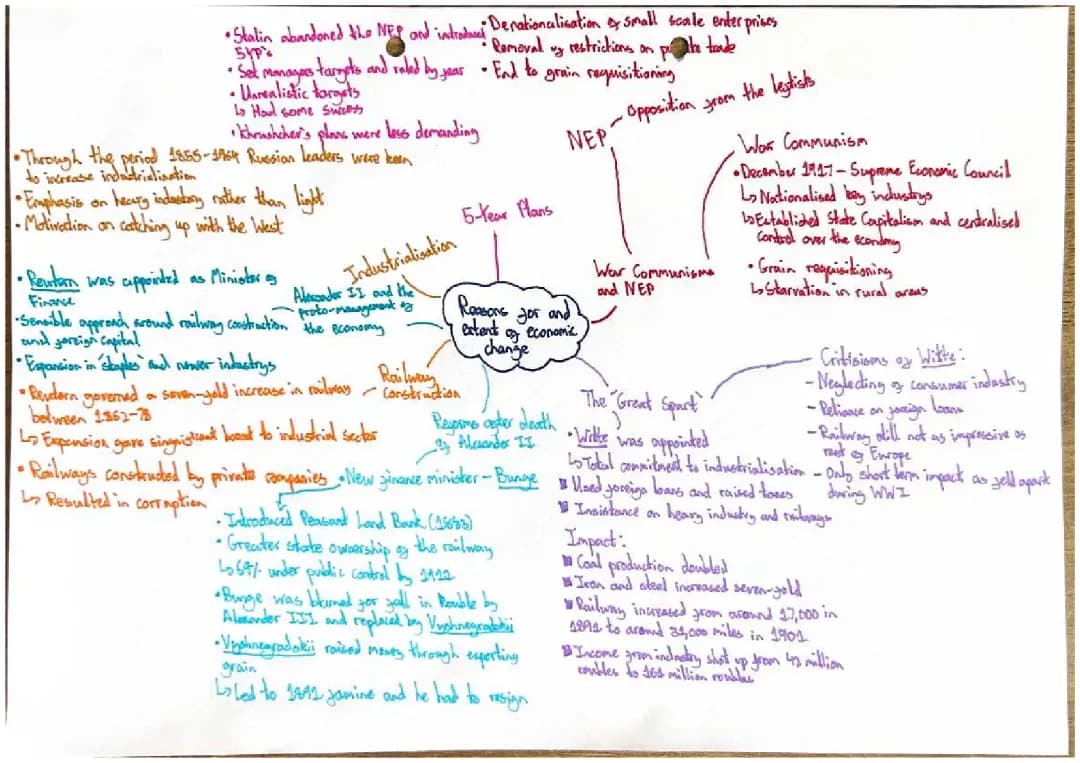 • Stalin abandoned the NEP and introduced
5YP's
• Set managers targets and ruled by fear
• Unrealistic targets
↳ Had some success
• Khrushchev's plans were less demanding
• Denationalisation of small scale enterprises
• Removal of restrictions on private trade
• End to grain requisitioning
NEP
Opposition from the leftists
War Communism
• December 1917 – Supreme Economic Council
↳ Nationalised key industrys
↳ Established State Capitalism and centralised
control over the economy
• Grain requisitioning
↳ Starvation in rural areas
War Communism
and NEP
• Through the period 1855-1964 Russian leaders were keen
to increase industrialisation
• Emphasis on heavy industry rather than light
• Motivation on catching up with the West
5-Year Plans
Industrialisation
Reasons for and
extent of economic
change
• Reutern was appointed as Minister of
Finance
• Sensible approach around railway construction
and foreign capital
• Expansion in 'staples' and newer industrys
Alexander II and the
proto-management of
the economy
• Reutern governed a seven-fold increase in railway
between 1862-78
↳ Expansion gave singnificant boost to industrial sector
• Railways constructed by private companies
↳ Resulted in corruption
Railway
Construction
Reforms after death
of Alexander II
• New finance minister – Bunge
• Introduced Peasant Land Bank (1883)
• Greater state ownership of the railway
↳ 69% under public control by 1912
• Bunge was blamed for fall in Rouble by
Alexander III and replaced by Vyshnegradskii
• Vyshnegradskii raised money through exporting
grain
↳ Led to 1891 famine and he had to resign
The 'Great Spurt'
• Witte was appointed
↳ Total commitment to industrialisation
Used foreign loans and raised taxes
Insistance on heavy industry and railways
Impact:
Coal production doubled
Iron and steel increased seven-fold
Railway increased from around 17,000 in
1891 to around 31,000 miles in 1901
Income from industry shot up from 42 million
roubles to 161 million roubles
Critisisms of Witte:
– Neglecting of consumer industry
– Reliance on foreign loans
– Railway still not as impressive as
rest of Europe
– Only short term impact as fell apart
during WWI